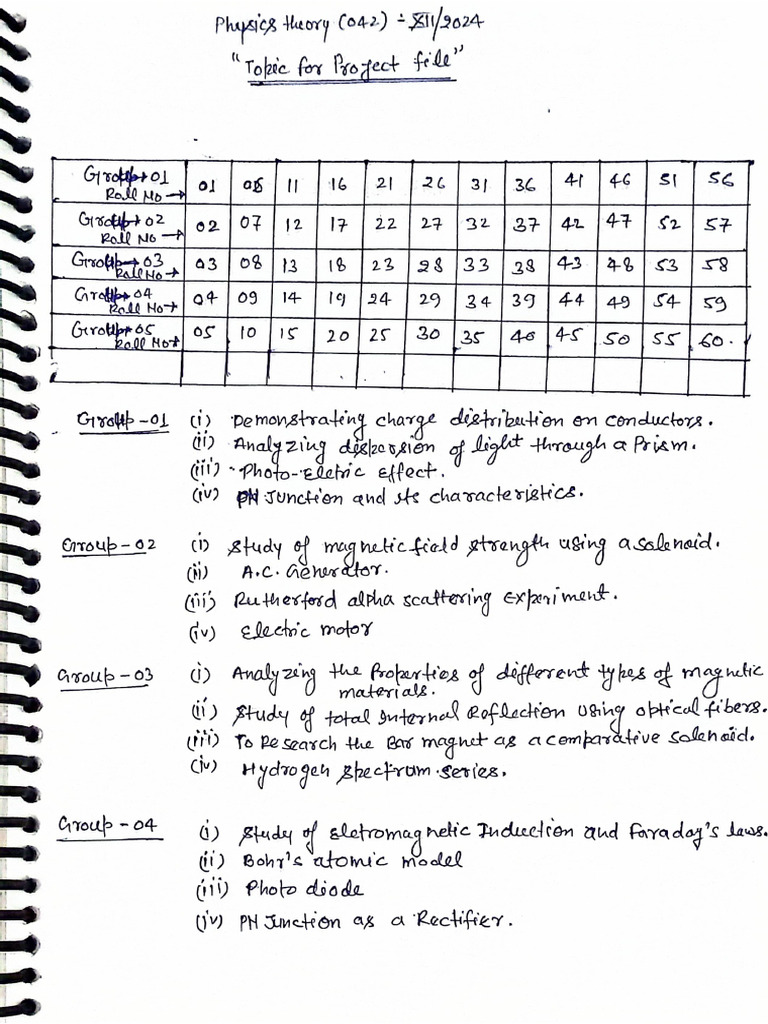 Physics theory (042) ÷ XII/2024
"Topic for Project file"
Group→01 Roll No → 01 06 11 16 21 26 31 36 41 46 51 56
Group→02 Roll No → 02 07 12 17 22 27 32 37 42 47 52 57
Group→03 Roll No → 03 08 13 18 23 28 33 38 43 48 53 58
Group→04 Roll No → 04 09 14 19 24 29 34 39 44 49 54 59
Group→05 Roll No → 05 10 15 20 25 30 35 40 45 50 55 60.
Group-01 (i) Demonstrating charge distribution on conductors.
(ii) Analyzing dispersion of light through a Prism.
(iii) Photo-Eletric Effect.
(iv) PN Junction and its characteristics.
Group-02 (i) Study of magnetic field strength using a solenoid.
(ii) A.C. Generator.
(iii) Rutherford alpha scattering Experiment.
(iv) Electric motor
Group-03 (i) Analyzing the Properties of different types of magnetic
materials.
(ii) Study of total Internal Reflection using optical fibers.
(iii) To Research the Bar magnet as a comparative solenoid.
(iv) Hydrogen spectrum series.
Group-04 (i) Study of Eletromagnetic Induction and Faraday's laws.
(ii) Bohr's atomic model
(iii) Photo diode
(iv) PN Junction as a Rectifier.